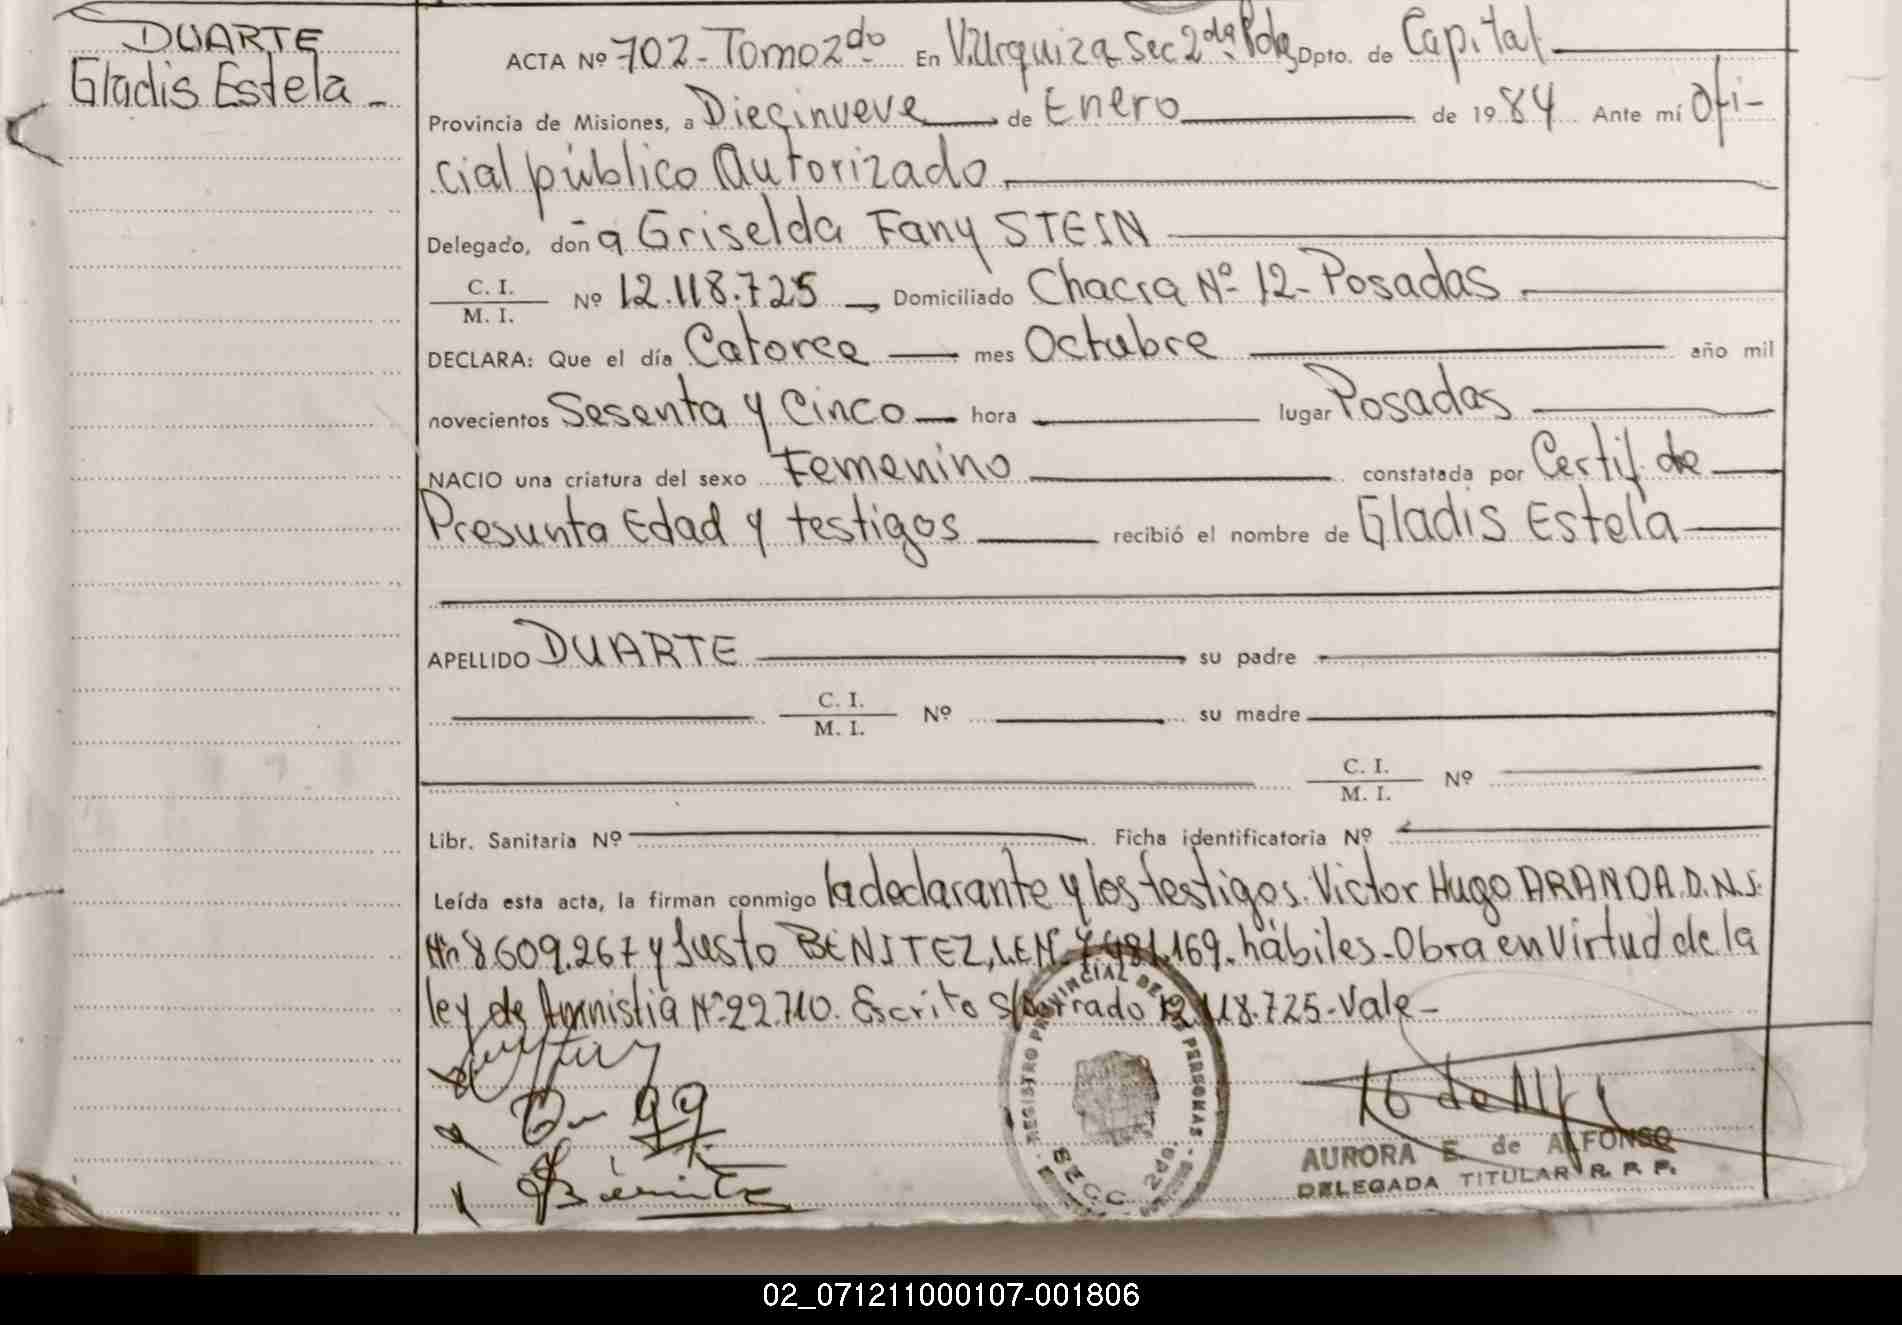 DUARTE
Gladis Estela -
ACTA Nº 702 - Tomo 2do En V. Urquiza Sec 2da Pdas Dpto. de Capital
Provincia de Misiones, a Diecinueve de Enero de 1984 Ante mí Ofi-
cial público Autorizado
Delegado, doña Griselda Fany STEIN
C. I.
M. I. Nº 12.118.725 Domiciliado Chacra Nº 12 - Posadas
DECLARA: Que el día Catorce mes Octubre año mil
novecientos Sesenta y Cinco hora lugar Posadas
NACIO una criatura del sexo Femenino constatada por Certif. de
Presunta Edad y testigos recibió el nombre de Gladis Estela
APELLIDO DUARTE su padre
C. I.
M. I. Nº su madre
C. I.
M. I. Nº
Libr. Sanitaria Nº Ficha identificatoria Nº
Leída esta acta, la firman conmigo la declarante y los testigos. Victor Hugo ARANDA. D.N.I.
Nº 8.609.267 y Justo BENITEZ, L.E.Nº 7.481.169. hábiles - Obra en Virtud de la
ley de Amnistia Nº 22.710. Escrito s/borrado 12.118.725 - Vale -
REGISTRO PROVINCIAL DE LAS PERSONAS
SECC. 2da.
AURORA E. de ALFONSO
DELEGADA TITULAR R. P. P.
02_071211000107-001806